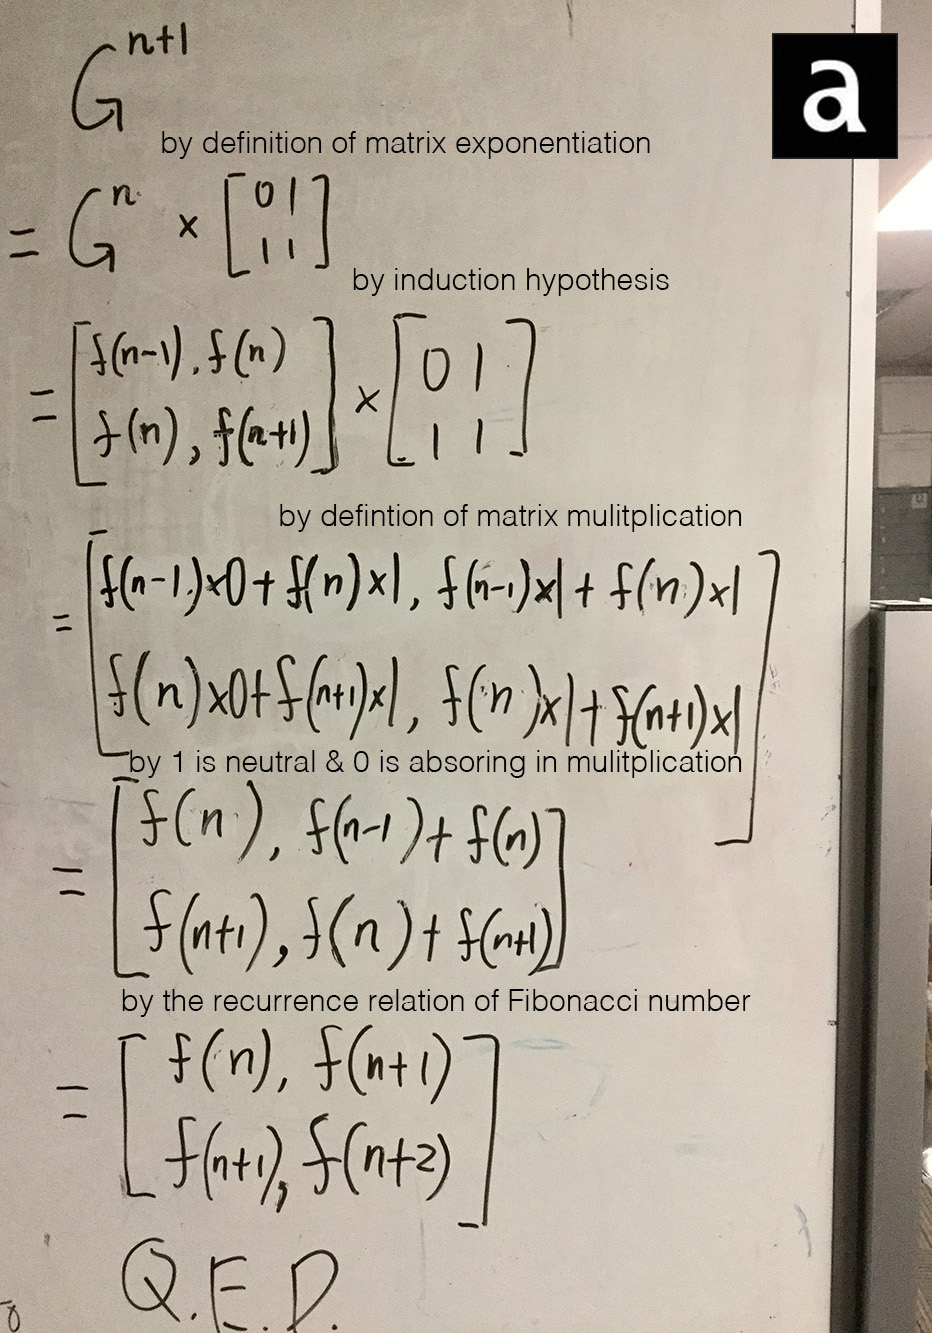 a
G^{n+1}
by definition of matrix exponentiation
= G^n × [0 1
1 1]
by induction hypothesis
= [f(n-1), f(n)
f(n), f(n+1)] × [0 1
1 1]
by defintion of matrix mulitplication
= [f(n-1)×0+f(n)×1, f(n-1)×1+f(n)×1
f(n)×0+f(n+1)×1, f(n)×1+f(n+1)×1]
by 1 is neutral & 0 is absoring in mulitplication
= [f(n), f(n-1)+f(n)
f(n+1), f(n)+f(n+1)]
by the recurrence relation of Fibonacci number
= [f(n), f(n+1)
f(n+1), f(n+2)]
Q.E.D.